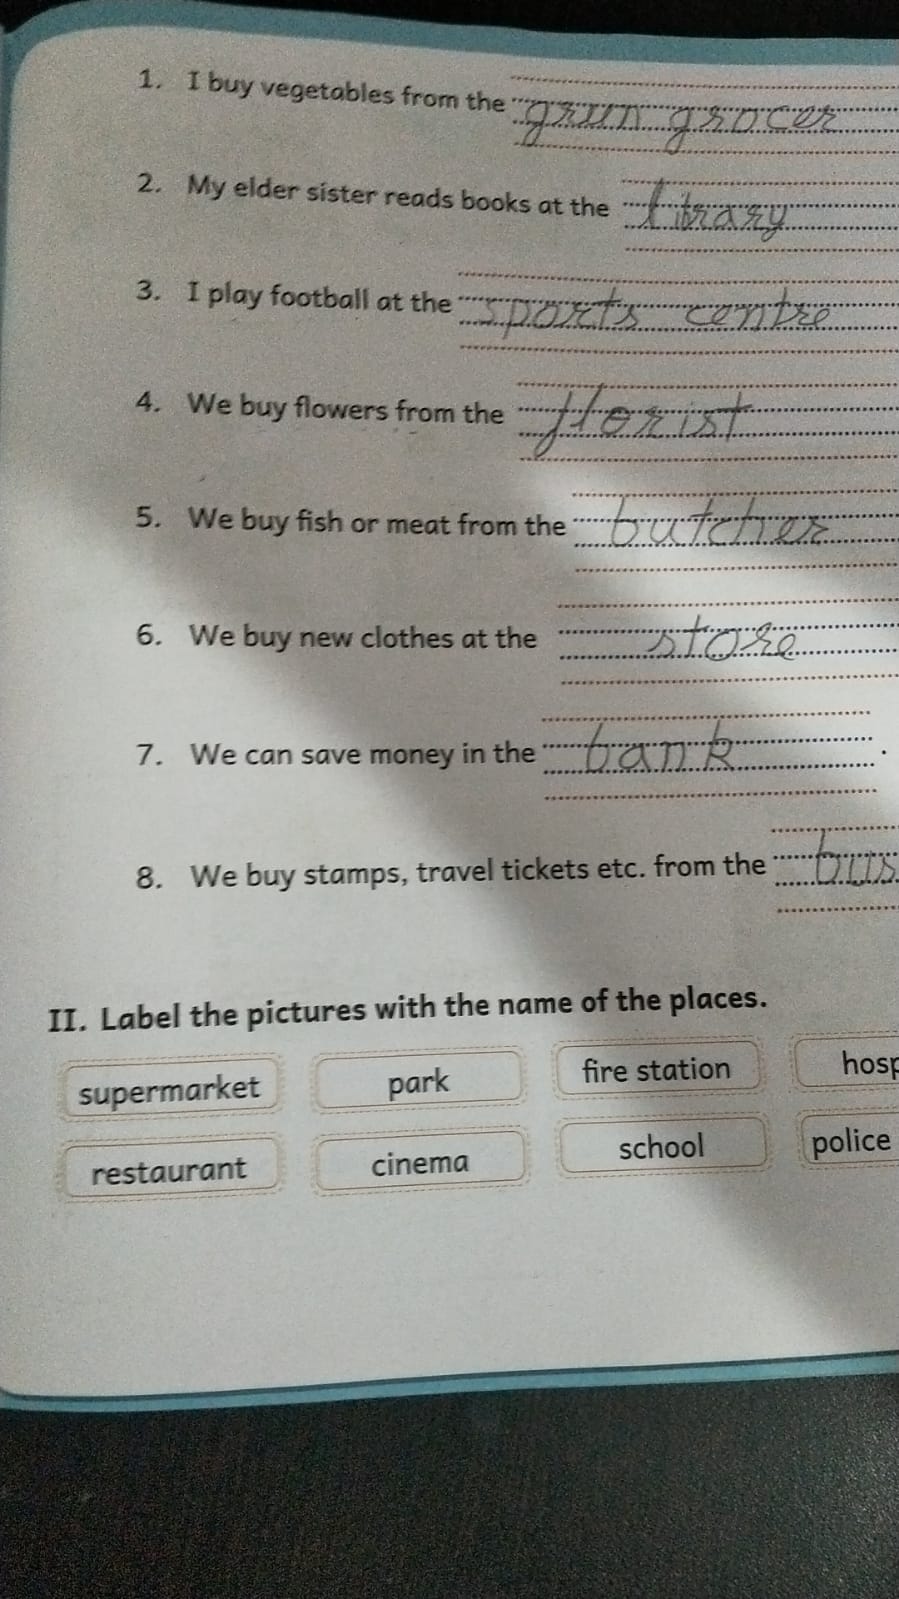 1. I buy vegetables from the grun grocer
2. My elder sister reads books at the library
3. I play football at the sports centre
4. We buy flowers from the florist
5. We buy fish or meat from the butcher
6. We buy new clothes at the store
7. We can save money in the bank.
8. We buy stamps, travel tickets etc. from the bus
II. Label the pictures with the name of the places.
supermarket park fire station hosp
restaurant cinema school police